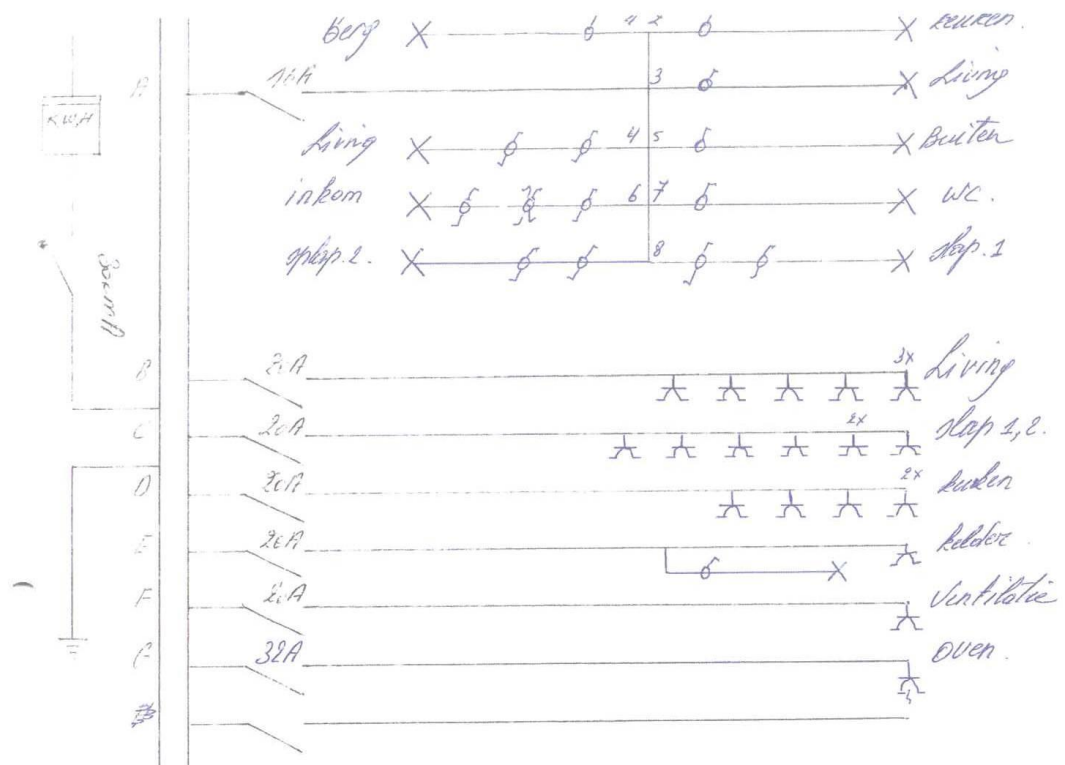 Berg 1 2 keuken.
A 16A 3 Living
KWH
Living 4 5 Buiten
inkom 6 7 WC.
slap. 2. 8 slap. 1
300mA
B 20A 3x Living
C 20A 2x slap 1,2.
D 20A 2x keuken
E 20A kelder
F 20A Ventilatie
G 32A oven.